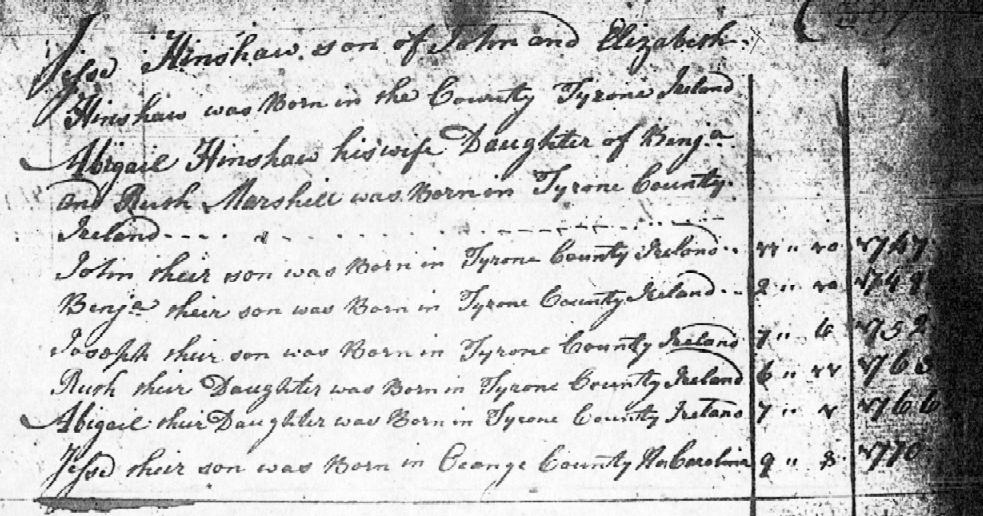 Jesse Hinshaw son of John and Elizabeth
Hinshaw was Born in the County Tyrone Ireland
Abigail Hinshaw his wife Daughter of Benja
and Ruth Marshill was Born in Tyrone County
Ireland
John their son was Born in Tyrone County Ireland 11 " 10 1747
Benja their son was Born in Tyrone County Ireland 2 " 10 1749
Joseph their son was Born in Tyrone County Ireland 7 " 6 1752
Ruth their Daughter was Born in Tyrone County Ireland 6 " 11 1763
Abigail their Daughter was Born in Tyrone County Ireland 7 " 1 1766
Jesse their son was Born in Orange County No Carolina 9 " 8 1770